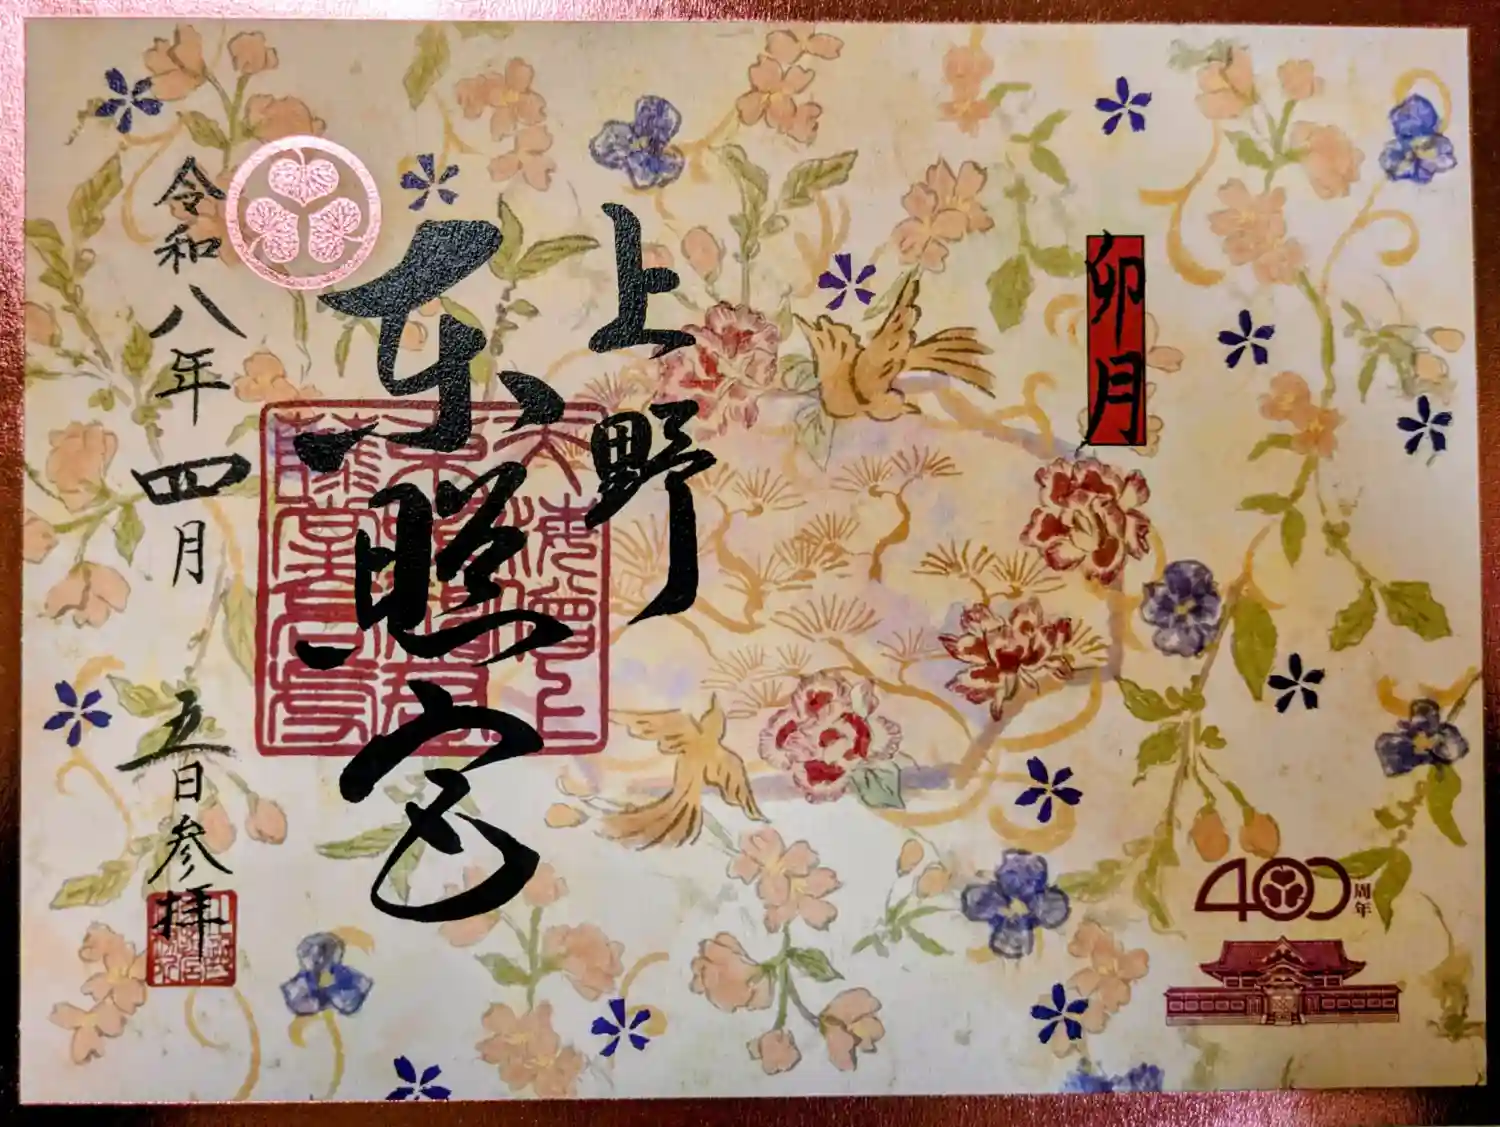 卯月
上野
東照宮
令和八年四月五日参拝
400周年